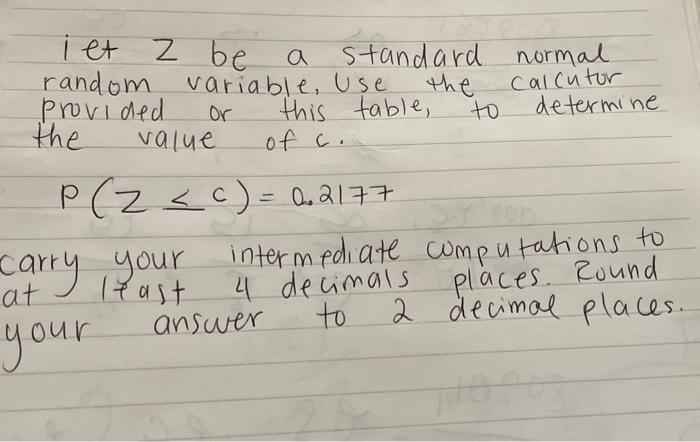 iet Z be a standard normal
random variable, Use the calcutor
provided or this table, to determine
the value of c.
P(Z ≤ c) = 0.2177
carry your intermediate computations to
at least 4 decimals places. Round
your answer to 2 decimal places.